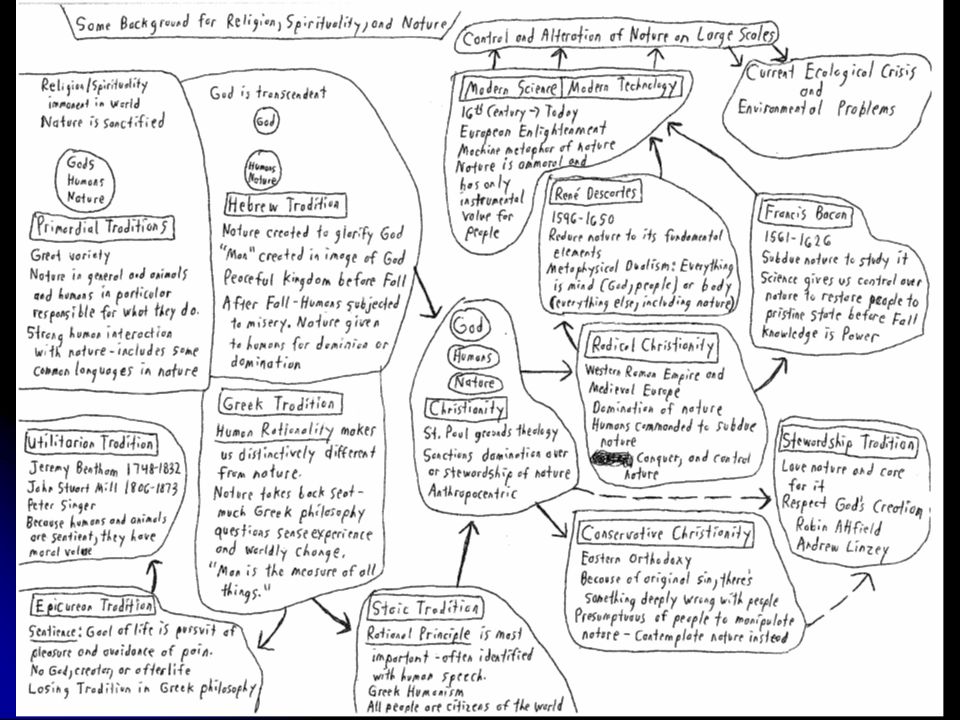 Some Background for Religion, Spirituality, and Nature
Control and Alteration of Nature on Large Scales
Current Ecological Crisis
and
Environmental Problems
Religion/Spirituality
immanent in world
Nature is sanctified
Gods
Humans
Nature
Primordial Traditions
Great variety
Nature in general and animals
and humans in particular
responsible for what they do.
Strong human interaction
with nature - includes some
common languages in nature
God is transcendent
God
Humans
Nature
Hebrew Tradition
Nature created to glorify God
"Man" created in image of God
Peaceful Kingdom before Fall
After Fall - Humans subjected
to misery. Nature given
to humans for dominion or
domination
Modern Science Modern Technology
16th Century → Today
European Enlightenment
Machine metaphor of nature
Nature is ammoral and
has only
instrumental
value for
people
René Descartes
1596-1650
Reduce nature to its fundamental
elements
Metaphysical Dualism: Everything
is mind (God, people) or body
(everything else, including nature)
Francis Bacon
1561-1626
Subdue nature to study it
Science gives us control over
nature to restore people to
pristine state before Fall
Knowledge is Power
God
Humans
Nature
Christianity
St. Paul grounds theology
Sanctions domination over
or stewardship of nature
Anthropocentric
Radical Christianity
Western Roman Empire and
Medieval Europe
Domination of nature
Humans commanded to subdue
nature
Conquer, and control
nature
Greek Tradition
Human Rationality makes
us distinctively different
from nature.
Nature takes back seat-
much Greek philosophy
questions sense experience
and worldly change.
"Man is the measure of all
things."
Utilitarian Tradition
Jeremy Bentham 1748-1832
John Stuart Mill 1806-1873
Peter Singer
Because humans and animals
are sentient, they have
moral value
Stewardship Tradition
Love nature and care
for it
Respect God's Creation
Robin Attfield
Andrew Linzey
Conservative Christianity
Eastern Orthodoxy
Because of original sin, there's
something deeply wrong with people
Presumptuous of people to manipulate
nature - Contemplate nature instead
Epicurean Tradition
Sentience: Goal of life is pursuit of
pleasure and avoidance of pain.
No God, creator, or afterlife
Losing Tradition in Greek philosophy
Stoic Tradition
Rational Principle is most
important - often identified
with human speech.
Greek Humanism
All people are citizens of the world